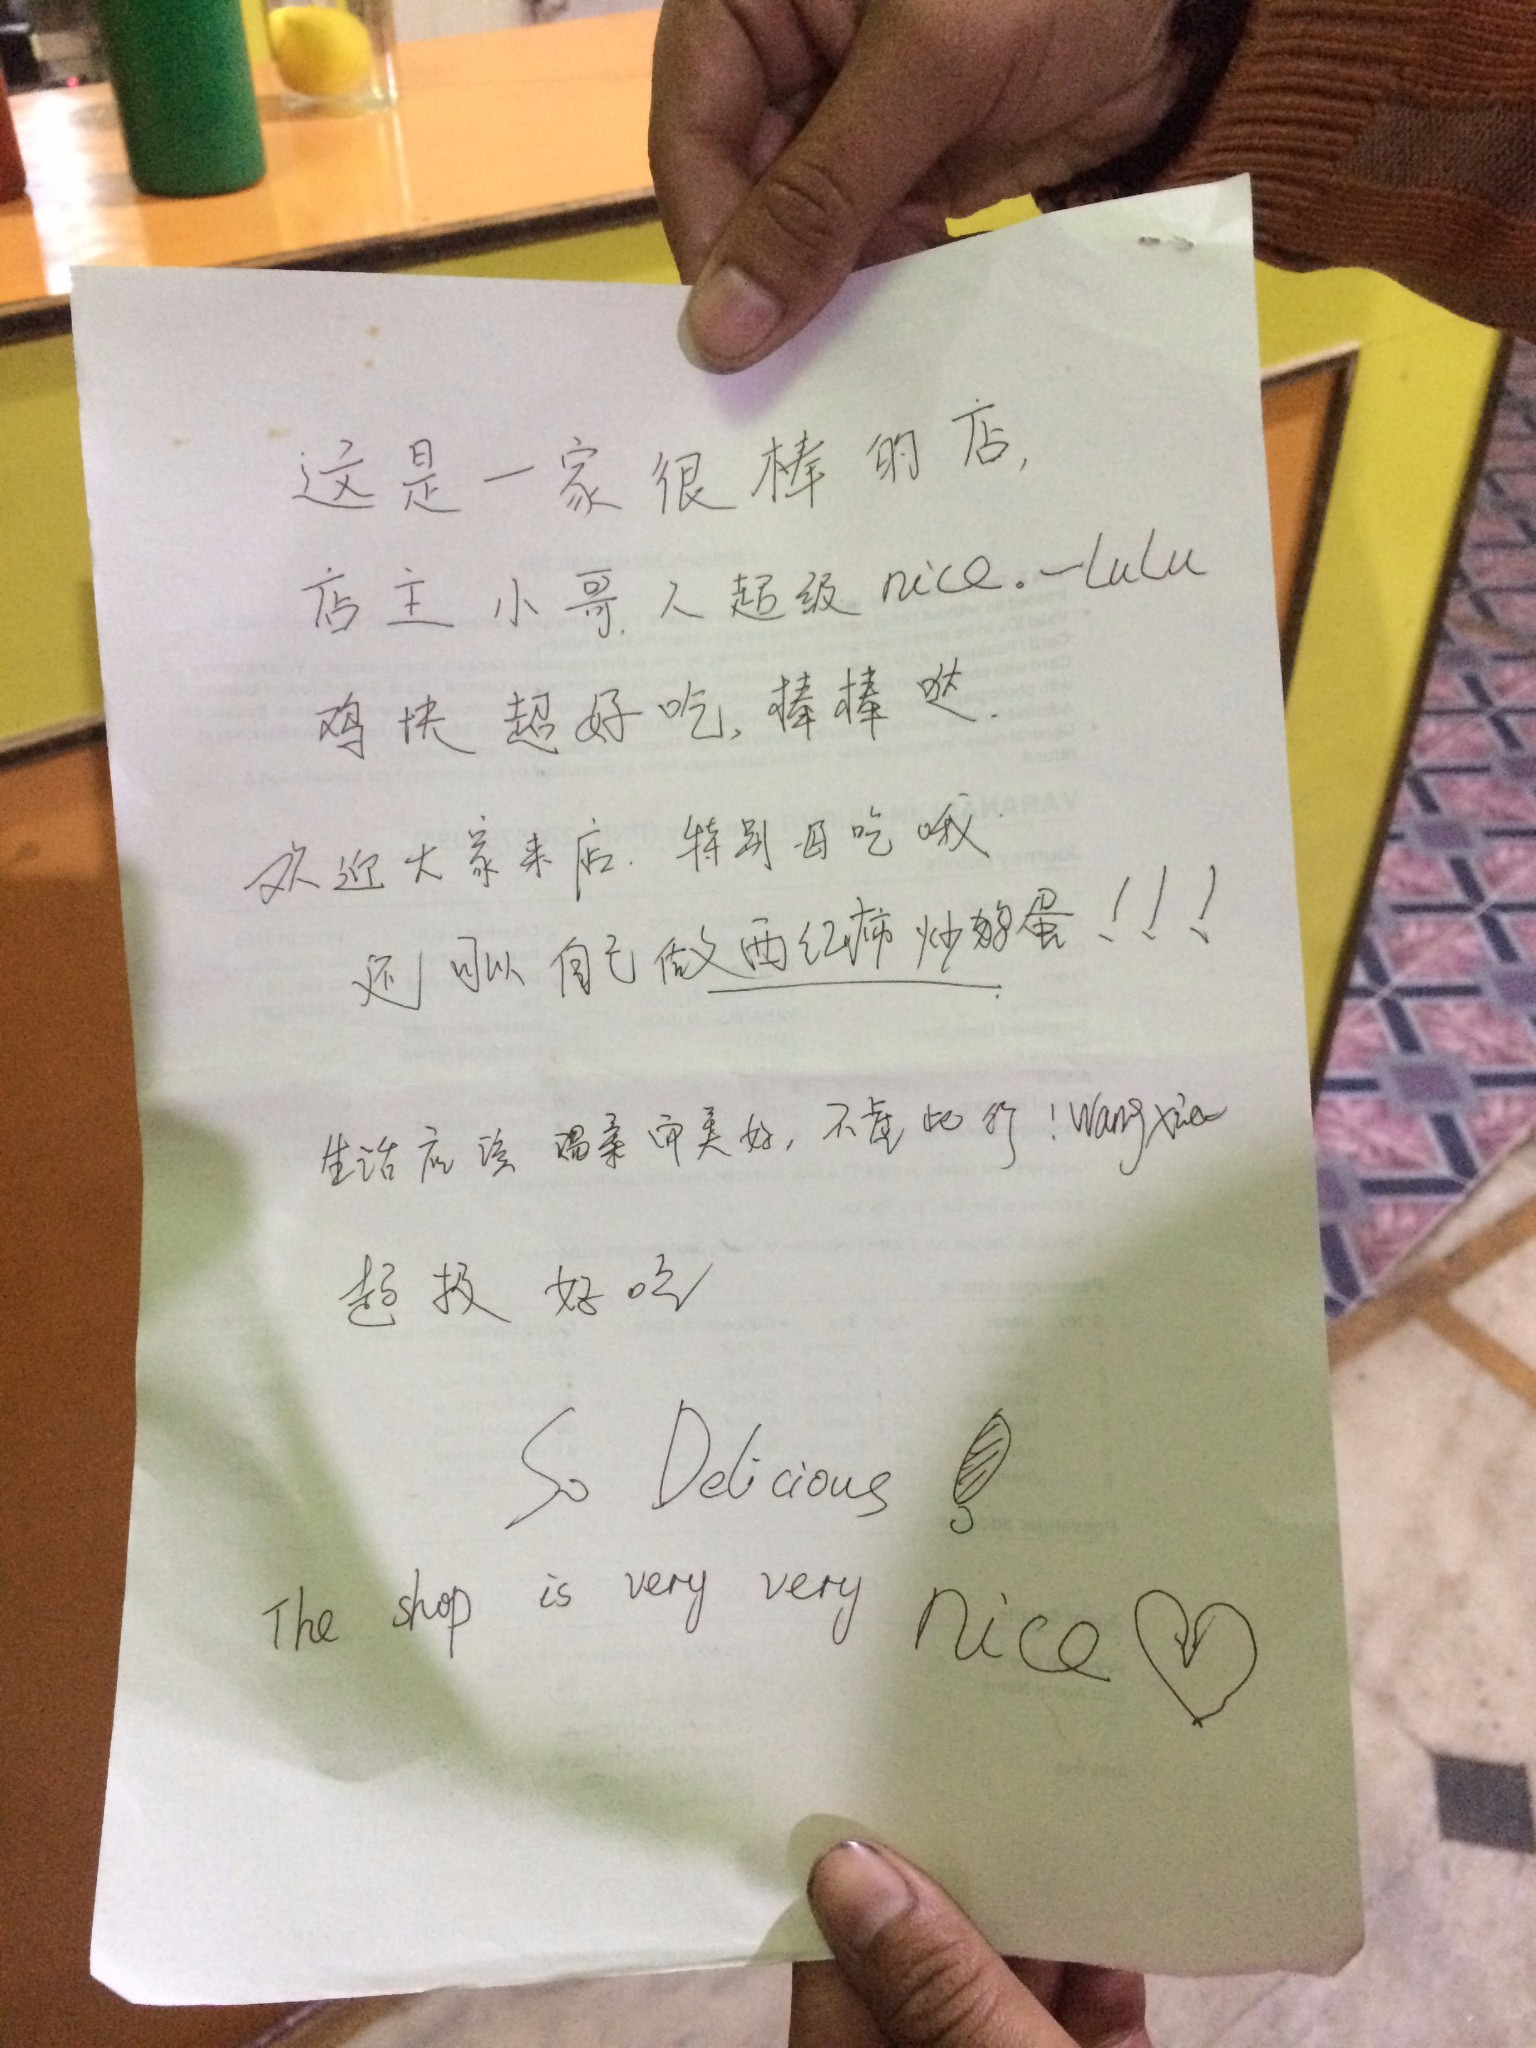 这是一家很棒的店,
店主小哥,人超级nice.—LuLu
鸡块超好吃,棒棒哒.
欢迎大家来店.特别好吃哦.
还可以自己做西红柿炒鸡蛋!!!
生活应该温柔而美好,不虚此行!Wang Xiao
超极好吃
So Delicious!
The shop is very very nice